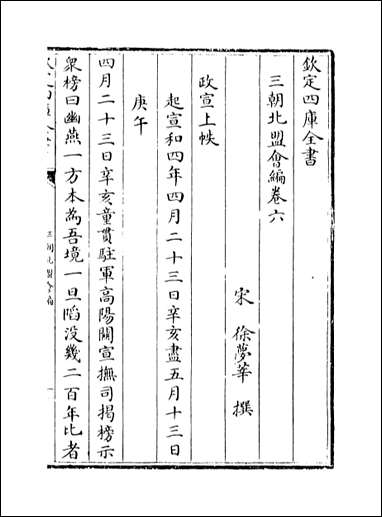 欽定四庫全書
三朝北盟會編卷六
宋 徐夢莘 撰
政宣上帙
起宣和四年四月二十三日辛亥盡五月十三日
庚午
四月二十三日辛亥童貫駐軍髙陽關宣撫司揭榜示
衆榜曰幽燕一方本為吾境一旦陷沒幾二百年比者
三朝北盟會編